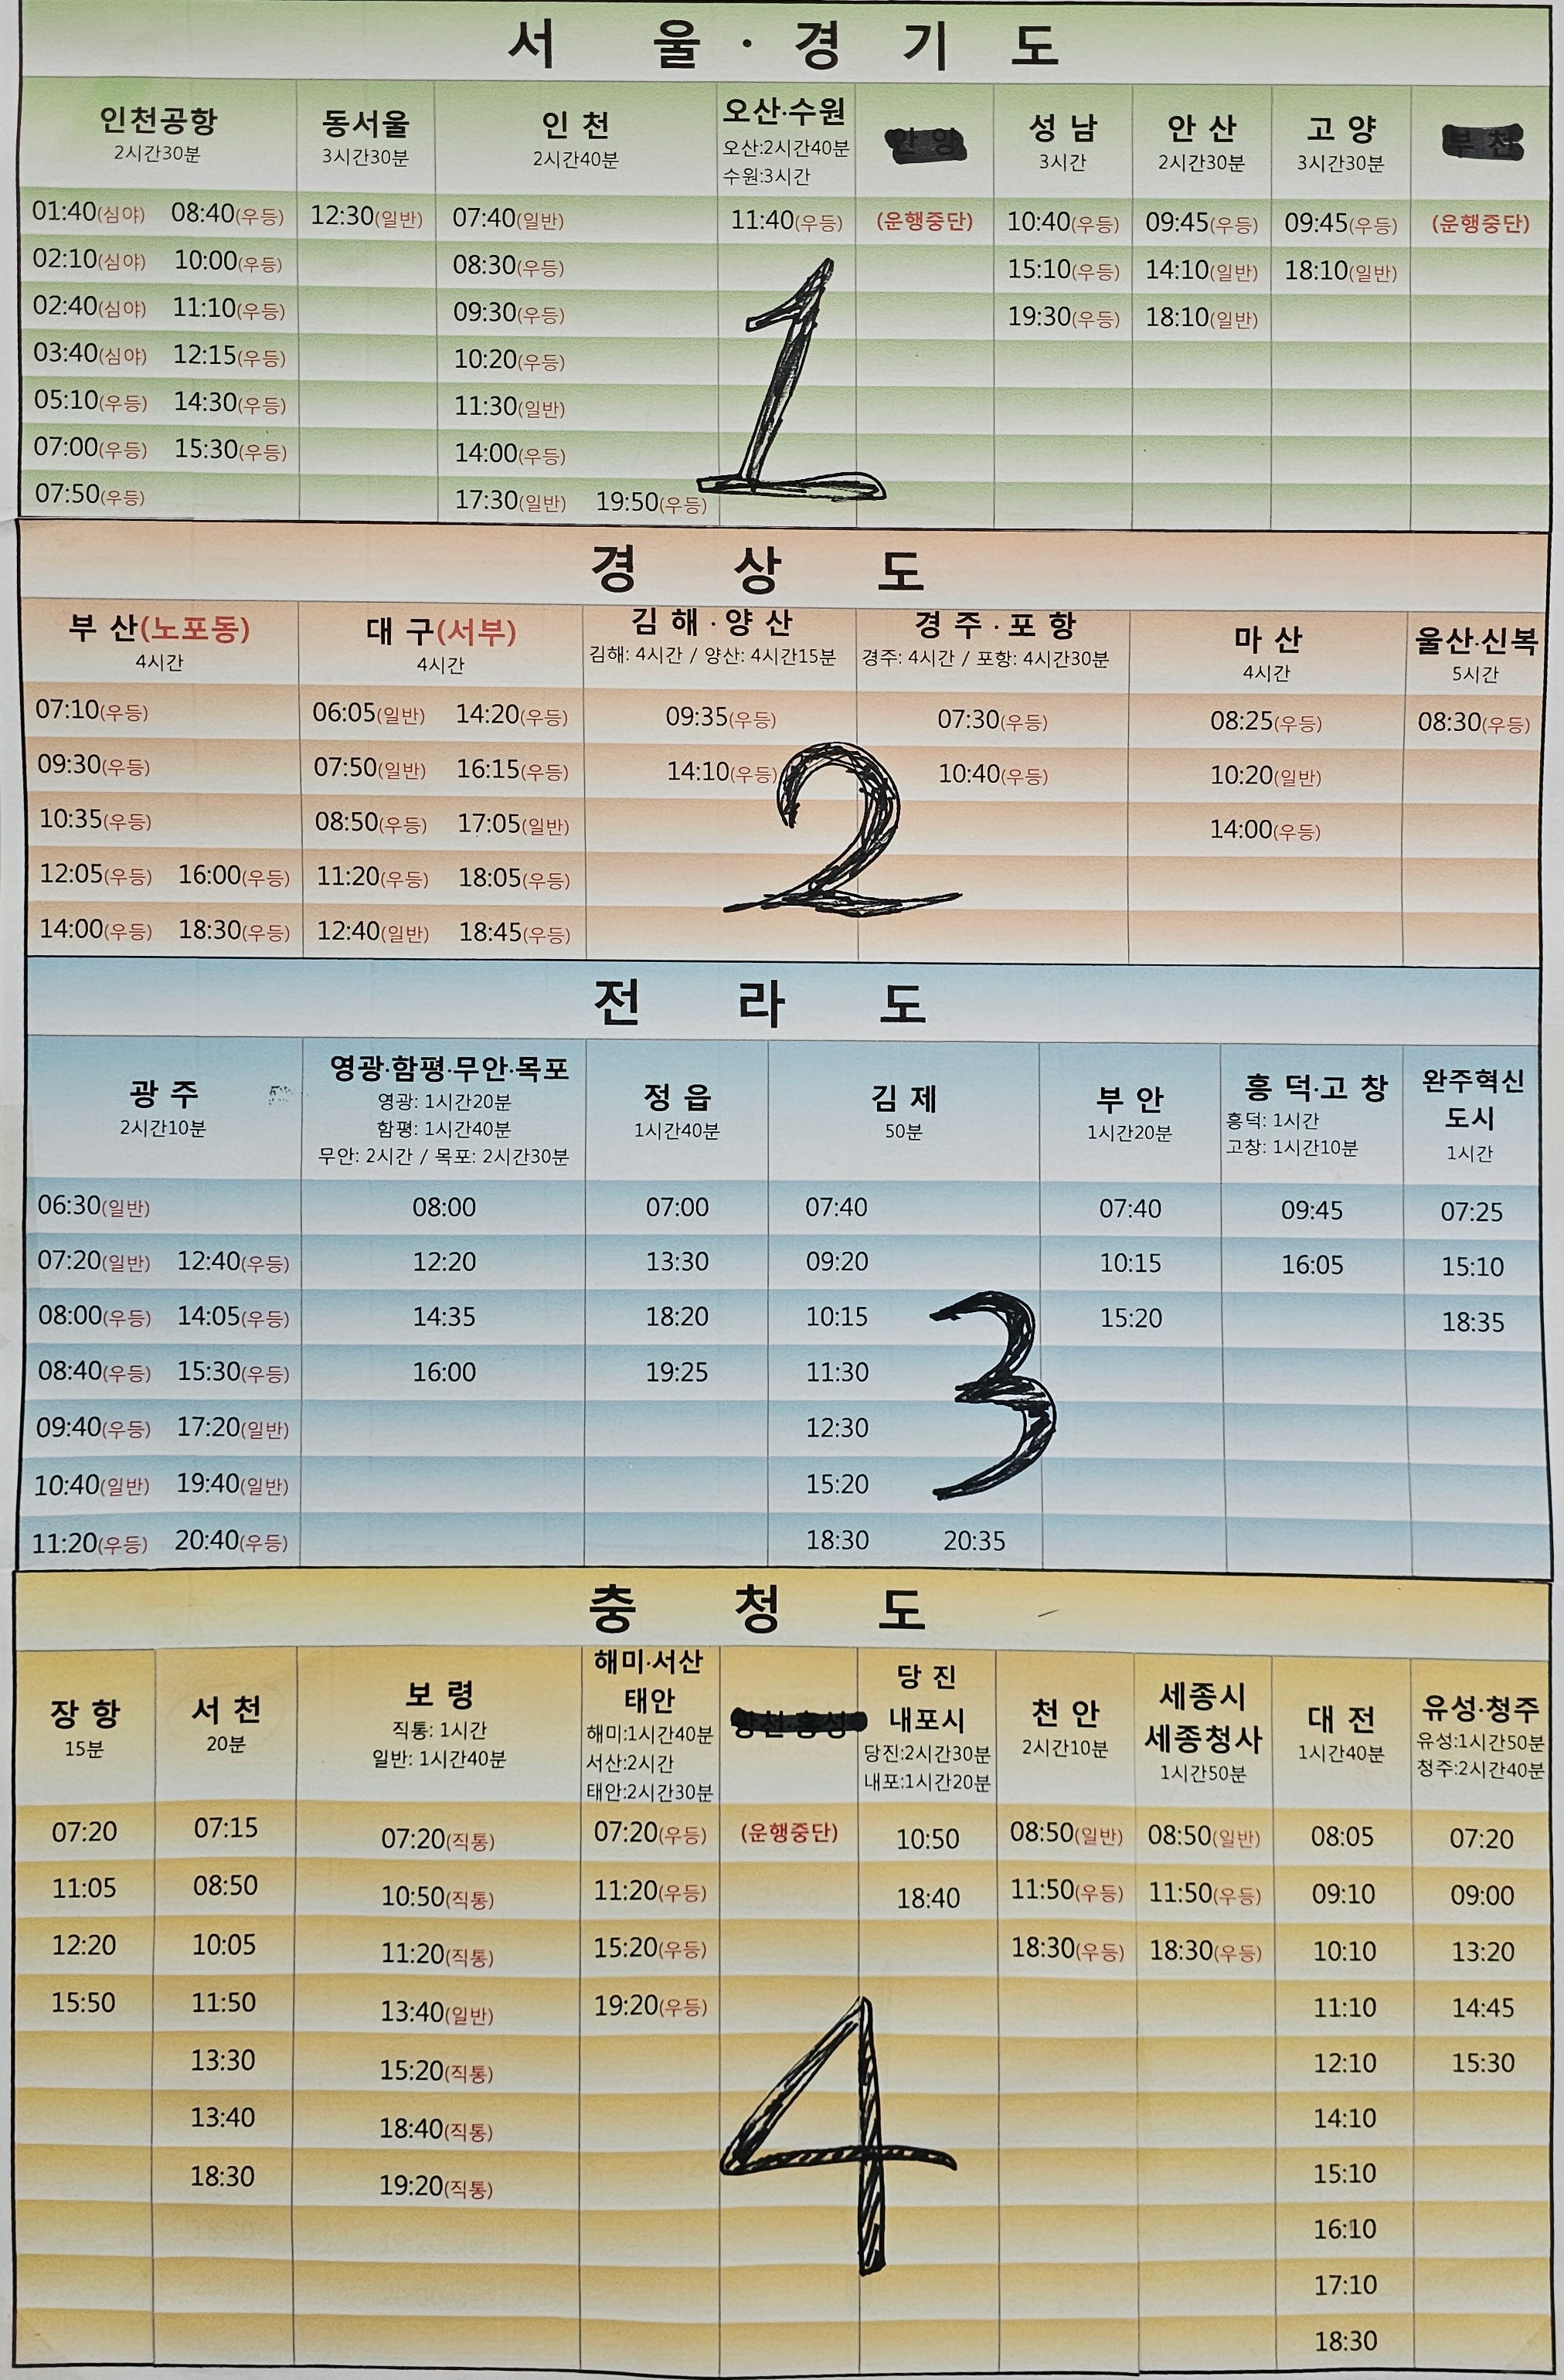 서 울 · 경 기 도
인천공항 동서울 인 천 오산·수원 안 양 성 남 안 산 고 양 부 천
2시간30분 3시간30분 2시간40분 오산:2시간40분 3시간 2시간30분 3시간30분
수원:3시간
01:40(심야) 08:40(우등) 12:30(일반) 07:40(일반) 11:40(우등) (운행중단) 10:40(우등) 09:45(우등) 09:45(우등) (운행중단)
02:10(심야) 10:00(우등) 08:30(우등) 15:10(우등) 14:10(일반) 18:10(일반)
02:40(심야) 11:10(우등) 09:30(우등) 19:30(우등) 18:10(일반)
03:40(심야) 12:15(우등) 10:20(우등)
05:10(우등) 14:30(우등) 11:30(일반)
07:00(우등) 15:30(우등) 14:00(우등)
07:50(우등) 17:30(일반) 19:50(우등)
1
경 상 도
부 산(노포동) 대 구(서부) 김 해 · 양 산 경 주 · 포 항 마 산 울산·신복
4시간 4시간 김해: 4시간 / 양산: 4시간15분 경주: 4시간 / 포항: 4시간30분 4시간 5시간
07:10(우등) 06:05(일반) 14:20(우등) 09:35(우등) 07:30(우등) 08:25(우등) 08:30(우등)
09:30(우등) 07:50(일반) 16:15(우등) 14:10(우등) 10:40(우등) 10:20(일반)
10:35(우등) 08:50(우등) 17:05(일반) 14:00(우등)
12:05(우등) 16:00(우등) 11:20(우등) 18:05(우등)
14:00(우등) 18:30(우등) 12:40(일반) 18:45(우등)
2
전 라 도
광 주 영광·함평·무안·목포 정 읍 김 제 부 안 흥 덕·고 창 완주혁신
도시
2시간10분 영광: 1시간20분 1시간40분 50분 1시간20분 흥덕: 1시간 1시간
함평: 1시간40분 고창: 1시간10분
무안: 2시간 / 목포: 2시간30분
06:30(일반) 08:00 07:00 07:40 07:40 09:45 07:25
07:20(일반) 12:40(우등) 12:20 13:30 09:20 10:15 16:05 15:10
08:00(우등) 14:05(우등) 14:35 18:20 10:15 15:20 18:35
08:40(우등) 15:30(우등) 16:00 19:25 11:30
09:40(우등) 17:20(일반) 12:30
10:40(일반) 19:40(일반) 15:20
11:20(우등) 20:40(우등) 18:30 20:35
3
충 청 도
장 항 서 천 보 령 해미·서산 당 진 천 안 세종시 대 전 유성·청주
태안 내포시 세종청사
15분 20분 직통: 1시간 해미:1시간40분 당진:2시간30분 2시간10분 1시간50분 1시간40분 유성:1시간50분
일반: 1시간40분 서산:2시간 내포:1시간20분 청주:2시간40분
태안:2시간30분
07:20 07:15 07:20(직통) 07:20(우등) (운행중단) 10:50 08:50(일반) 08:50(일반) 08:05 07:20
11:05 08:50 10:50(직통) 11:20(우등) 18:40 11:50(우등) 11:50(우등) 09:10 09:00
12:20 10:05 11:20(직통) 15:20(우등) 18:30(우등) 18:30(우등) 10:10 13:20
15:50 11:50 13:40(일반) 19:20(우등) 11:10 14:45
13:30 15:20(직통) 12:10 15:30
13:40 18:40(직통) 14:10
18:30 19:20(직통) 15:10
16:10
17:10
18:30
4